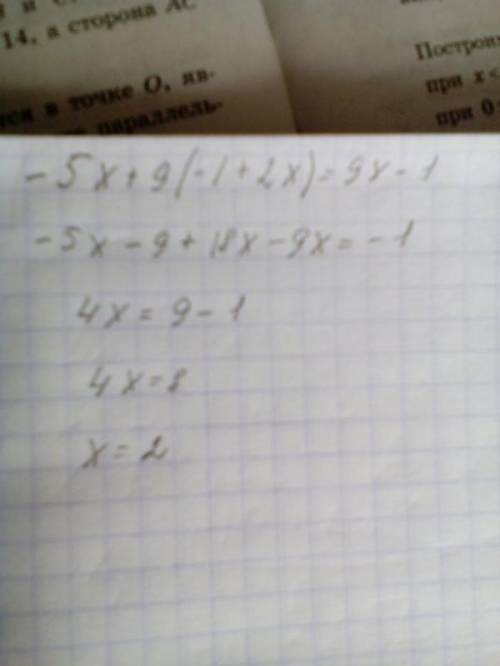 14, а сторона АС
в точке О, яв-
параллель-
Построи
при x <
при 0
-5x+9(-1+2x)=9x-1
-5x-9+18x-9x=-1
4x=9-1
4x=8
x=2